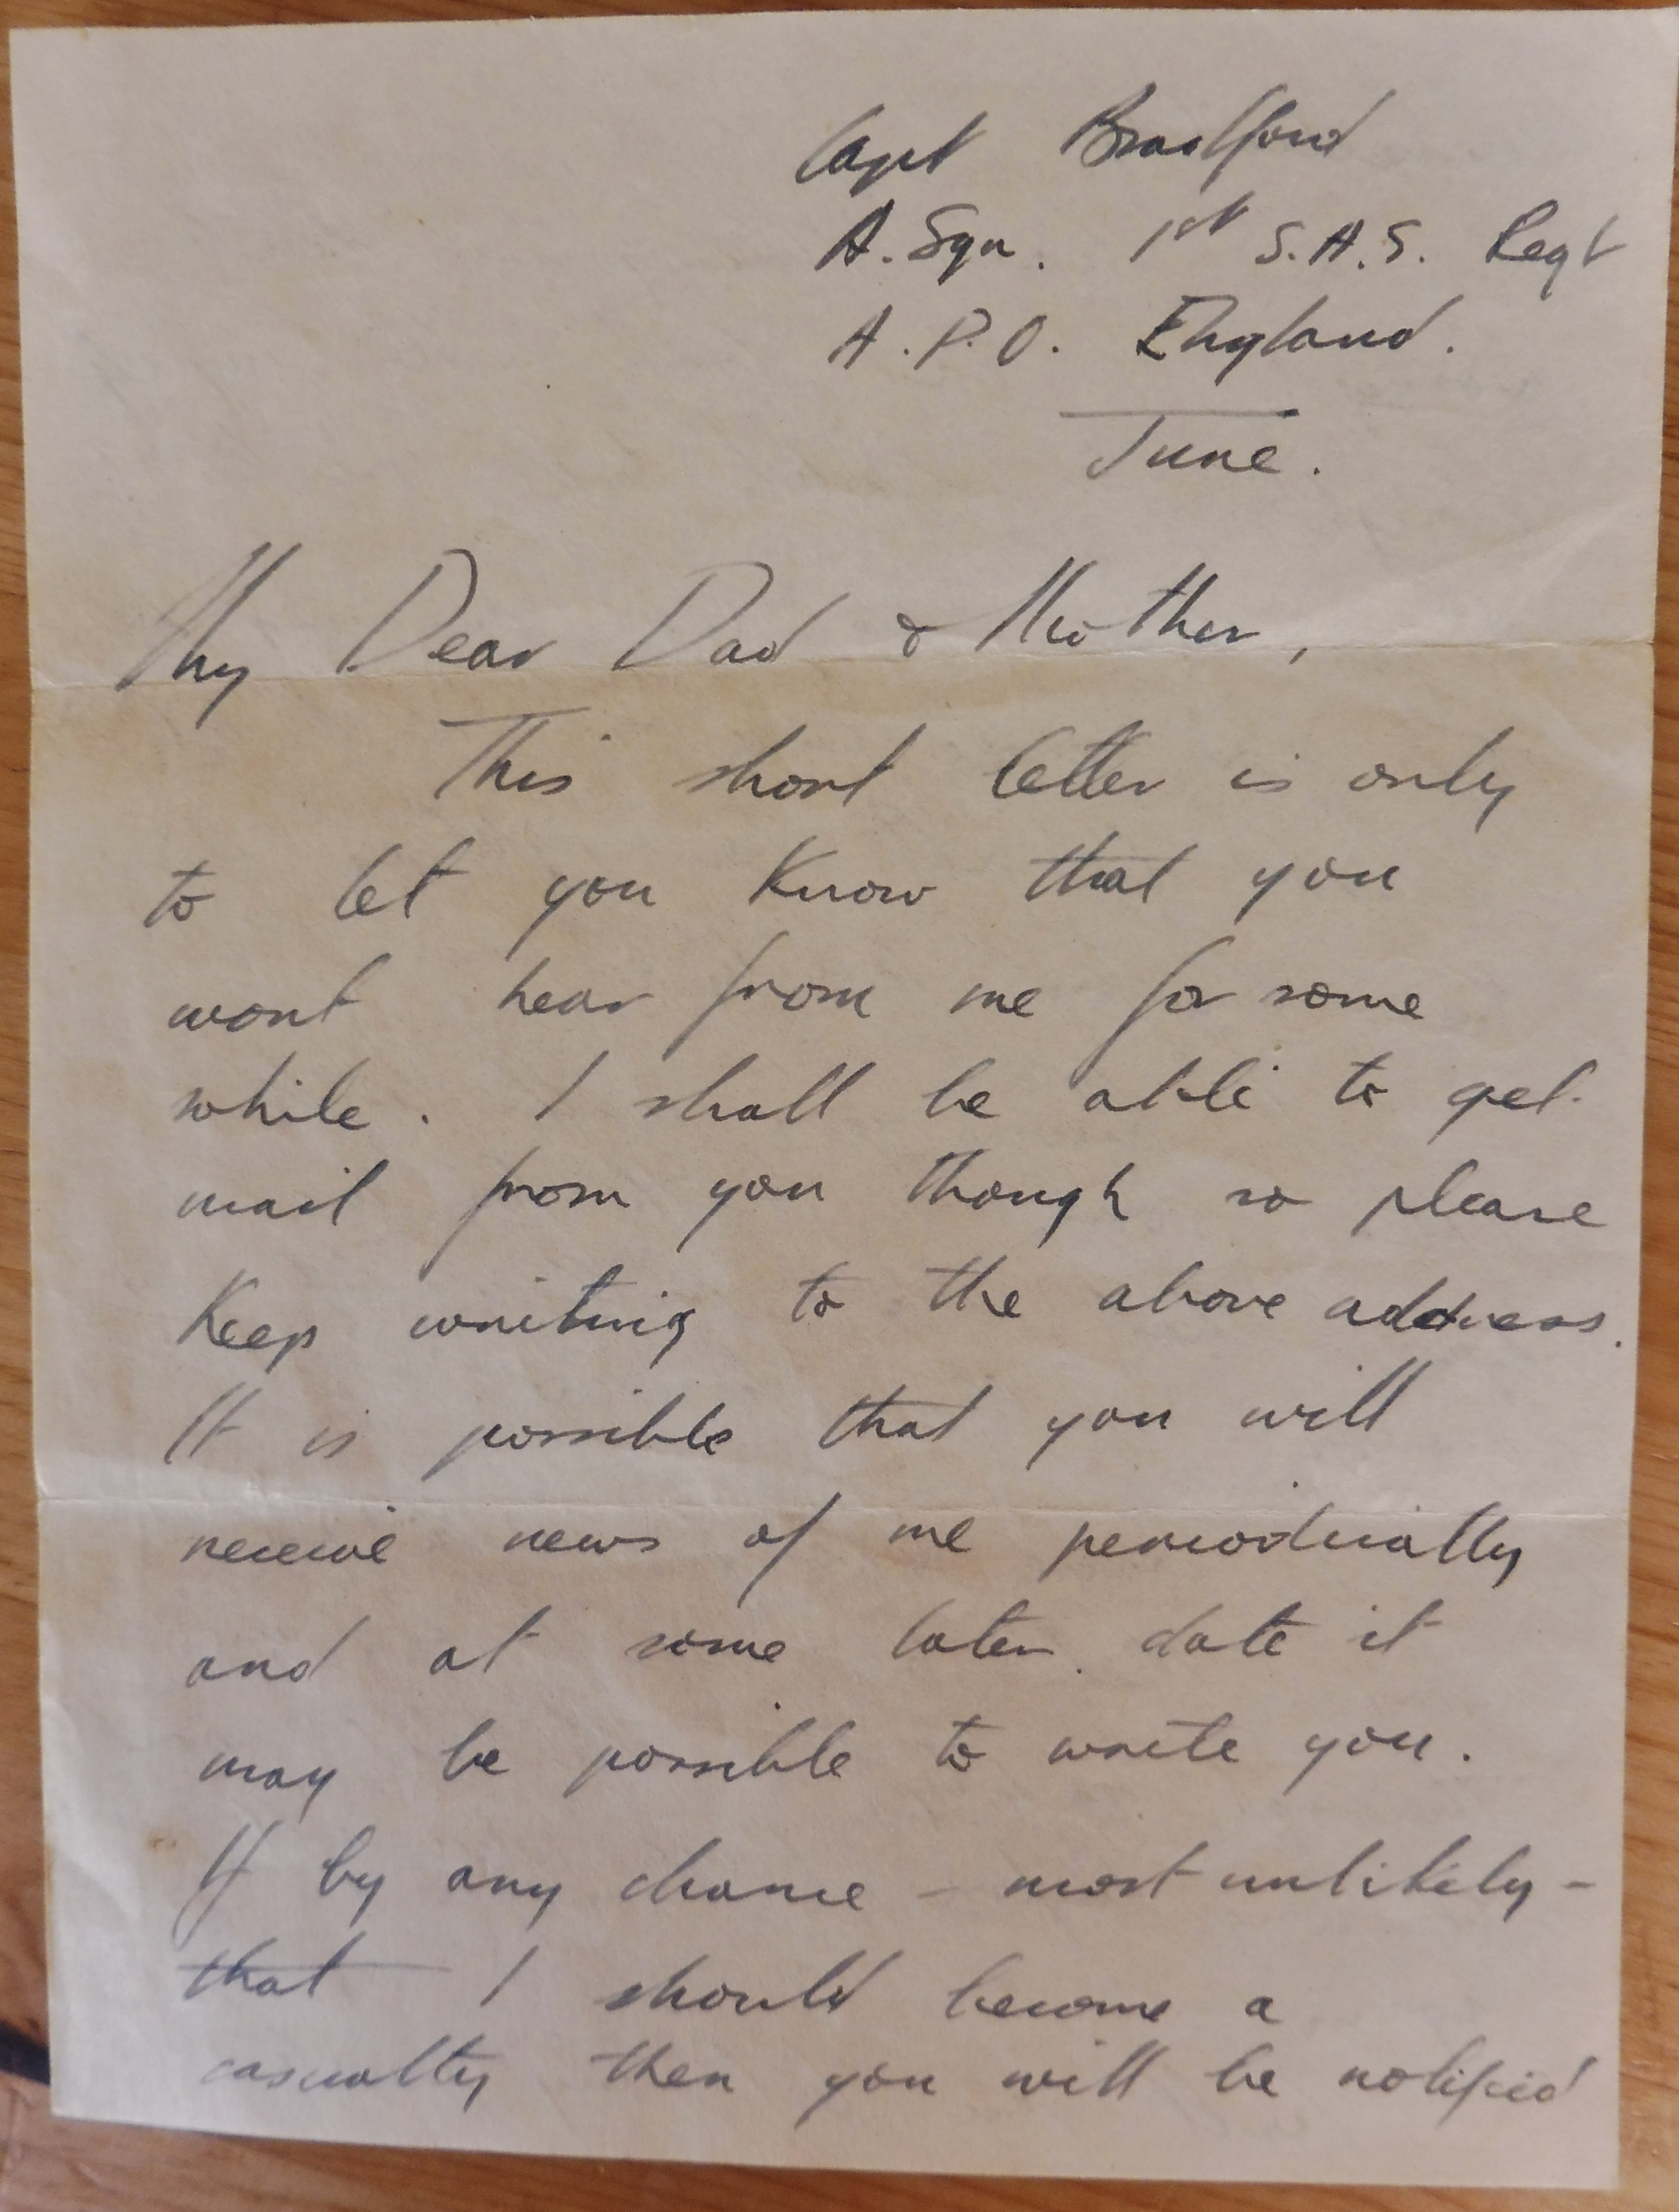 Capt Bradford
A. Sqn. 1st S.A.S. Regt
A.P.O. England.
June.
My Dear Dad & Mother,
This short letter is only
to let you know that you
wont hear from me for some
while. I shall be able to get
mail from you though so please
keep writing to the above address.
It is possible that you will
receive news of me periodically
and at some later date it
may be possible to write you.
If by any chance – most unlikely –
that I should become a
casualty then you will be notified